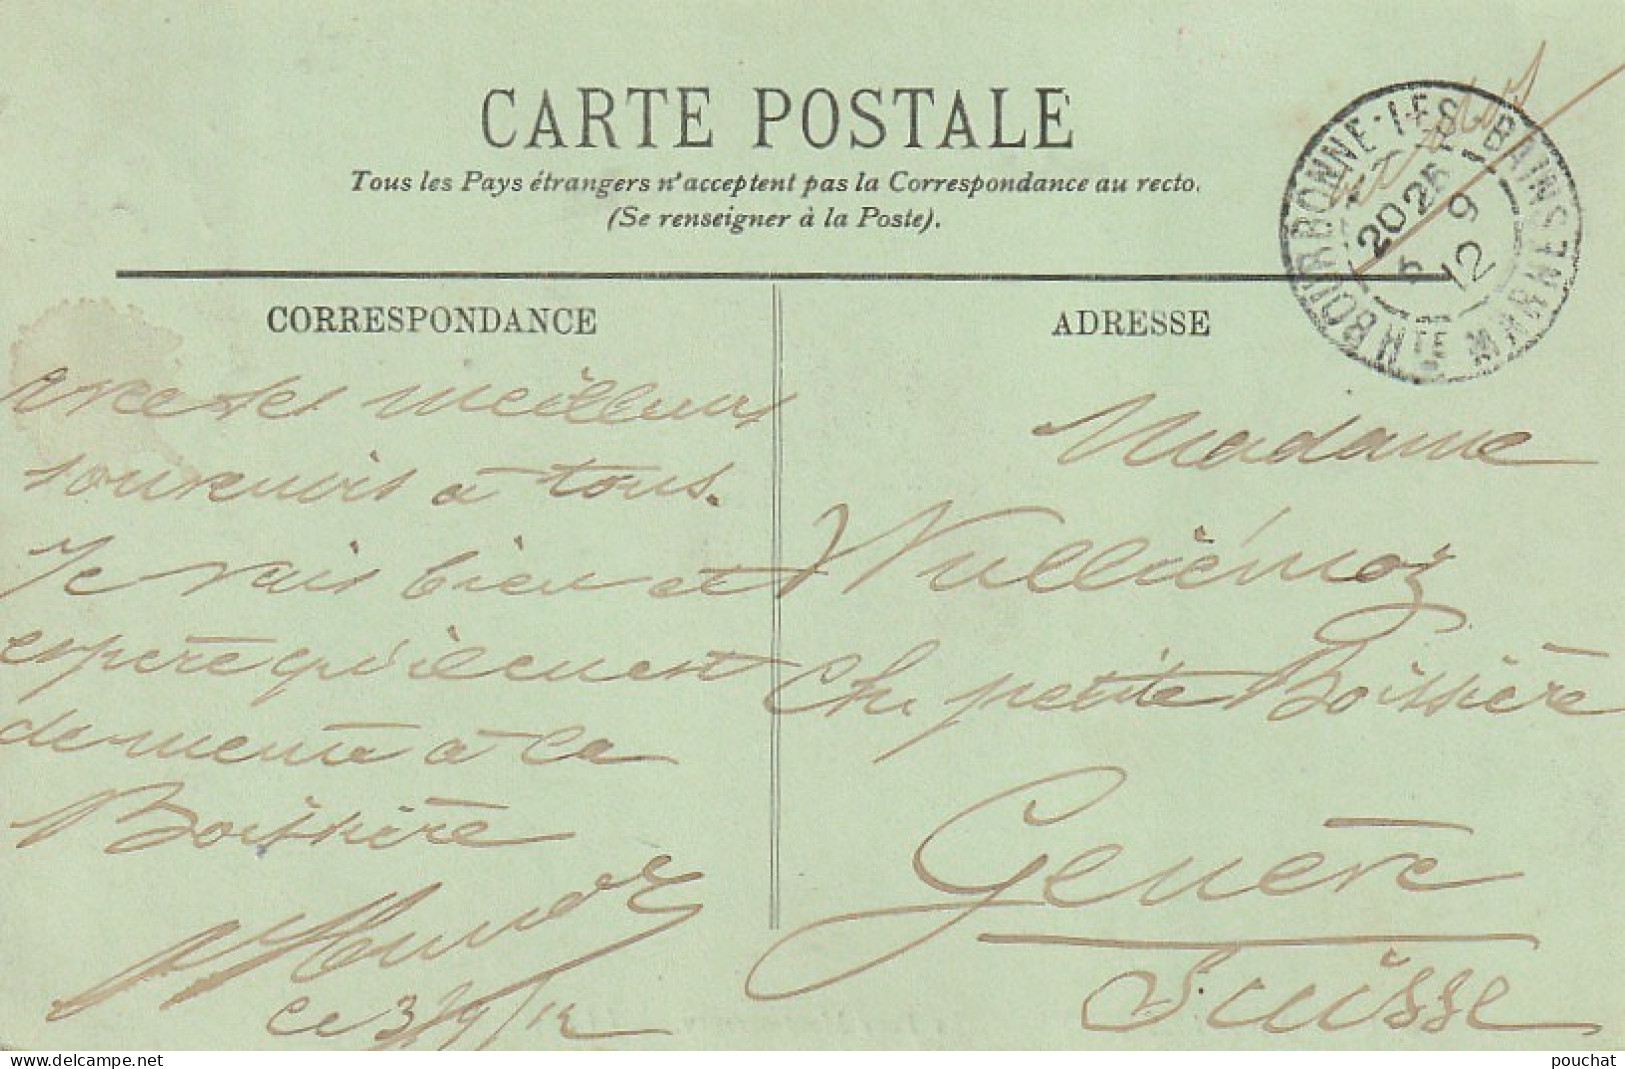 CARTE POSTALE
Tous les Pays étrangers n'acceptent pas la Correspondance au recto.
(Se renseigner à la Poste).
CORRESPONDANCE
avec ses meilleurs
souvenirs à tous.
Je vais bien et
espère qu'il en est
de même à la
Boissière
ce 3/9/12
ADRESSE
Madame
Vulliémoz
Ch. petite Boissière
Genève
Suisse
BOURBONNE-LES-BAINS
HTE MARNE
20 25
5 9
12
pouchat
www.delcampe.net